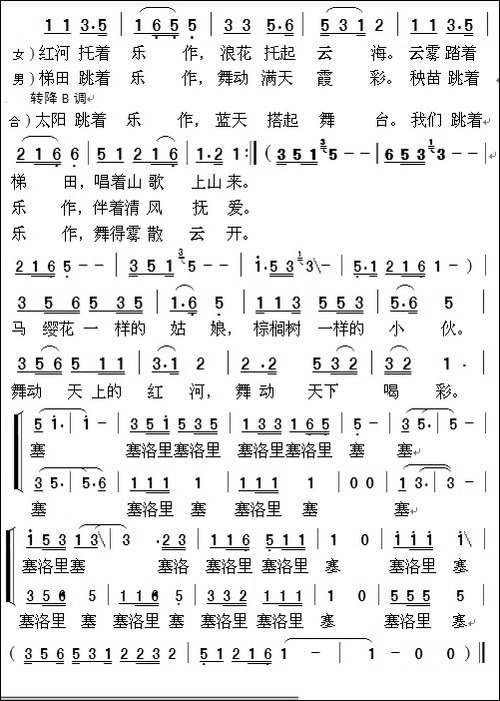 1 1 3·5 | 1 6 5 5 | 3 3 5·6 | 5 3 1 2 | 3 3 3·5 |
女）红河 托着 乐 作，浪花 托起 云 海。云雾 踏着
男）梯田 跳着 乐 作，舞动 满天 霞 彩。秧苗 跳着
转降B调↵
合）太阳 跳着 乐 作，蓝天 搭起 舞 台。我们 跳着
2 1 6 6 | 5 1 2 1 6 | 1·2 1 :‖ ( 3 5 1 3 5 - - | 6 5 3 1 3 - - |
梯 田，唱着 山 歌 上山 来。
乐 作，伴着 清 风 抚 爱。
乐 作，舞得 雾 散 云 开。
2 1 6 5 - - | 3 5 1 3 5 - - | 1·5 3 1 3 \ - | 5·1 2 1 6 1 - ) |
3 5 6 5 3 5 | 1·6 5 | 1 1 3 5 5 3 | 5·6 5 |
马 缨花 一 样的 姑 娘，棕榈树 一样的 小 伙。
3 5 6 5 1 1 | 3·1 2 | 2·2 5 3 2 | 3 2 1· |
舞动 天 上的 红 河，舞 动 天下 喝 彩。
5 1· 1 - | 3 5 1 5 1 3 | 1 3 3 1 6 5 | 5 5 | 3 5· 5 - |
塞 塞洛里塞洛里 塞洛里塞洛里 塞 塞↵
3 5· 5·6 | 1 1 1 1 | 1 1 1 1 | 1 0 0 | 1 3· 3 - |
塞 塞洛里 塞 塞洛里 塞 塞 塞↵
1 5 3 1 3 \ 3 ·2 3 | 1 1 6 5 1 1 | 1 0 | 1 1 1 1 \ |
塞洛里塞 塞洛 塞洛里 塞洛里 塞 塞洛里 塞
3 5 6 5 | 1 1 6 5 | 3 3 2 1 1 1 | 1 0 0 | 5 5 5 5 |
塞洛里 塞 塞洛里 塞 塞洛里 塞洛里 塞 塞洛里 塞↵
( 3 5 6 5 3 1 2 2 3 2 | 5 1 2 1 6 1 - | 1 - 0 0 ) ‖